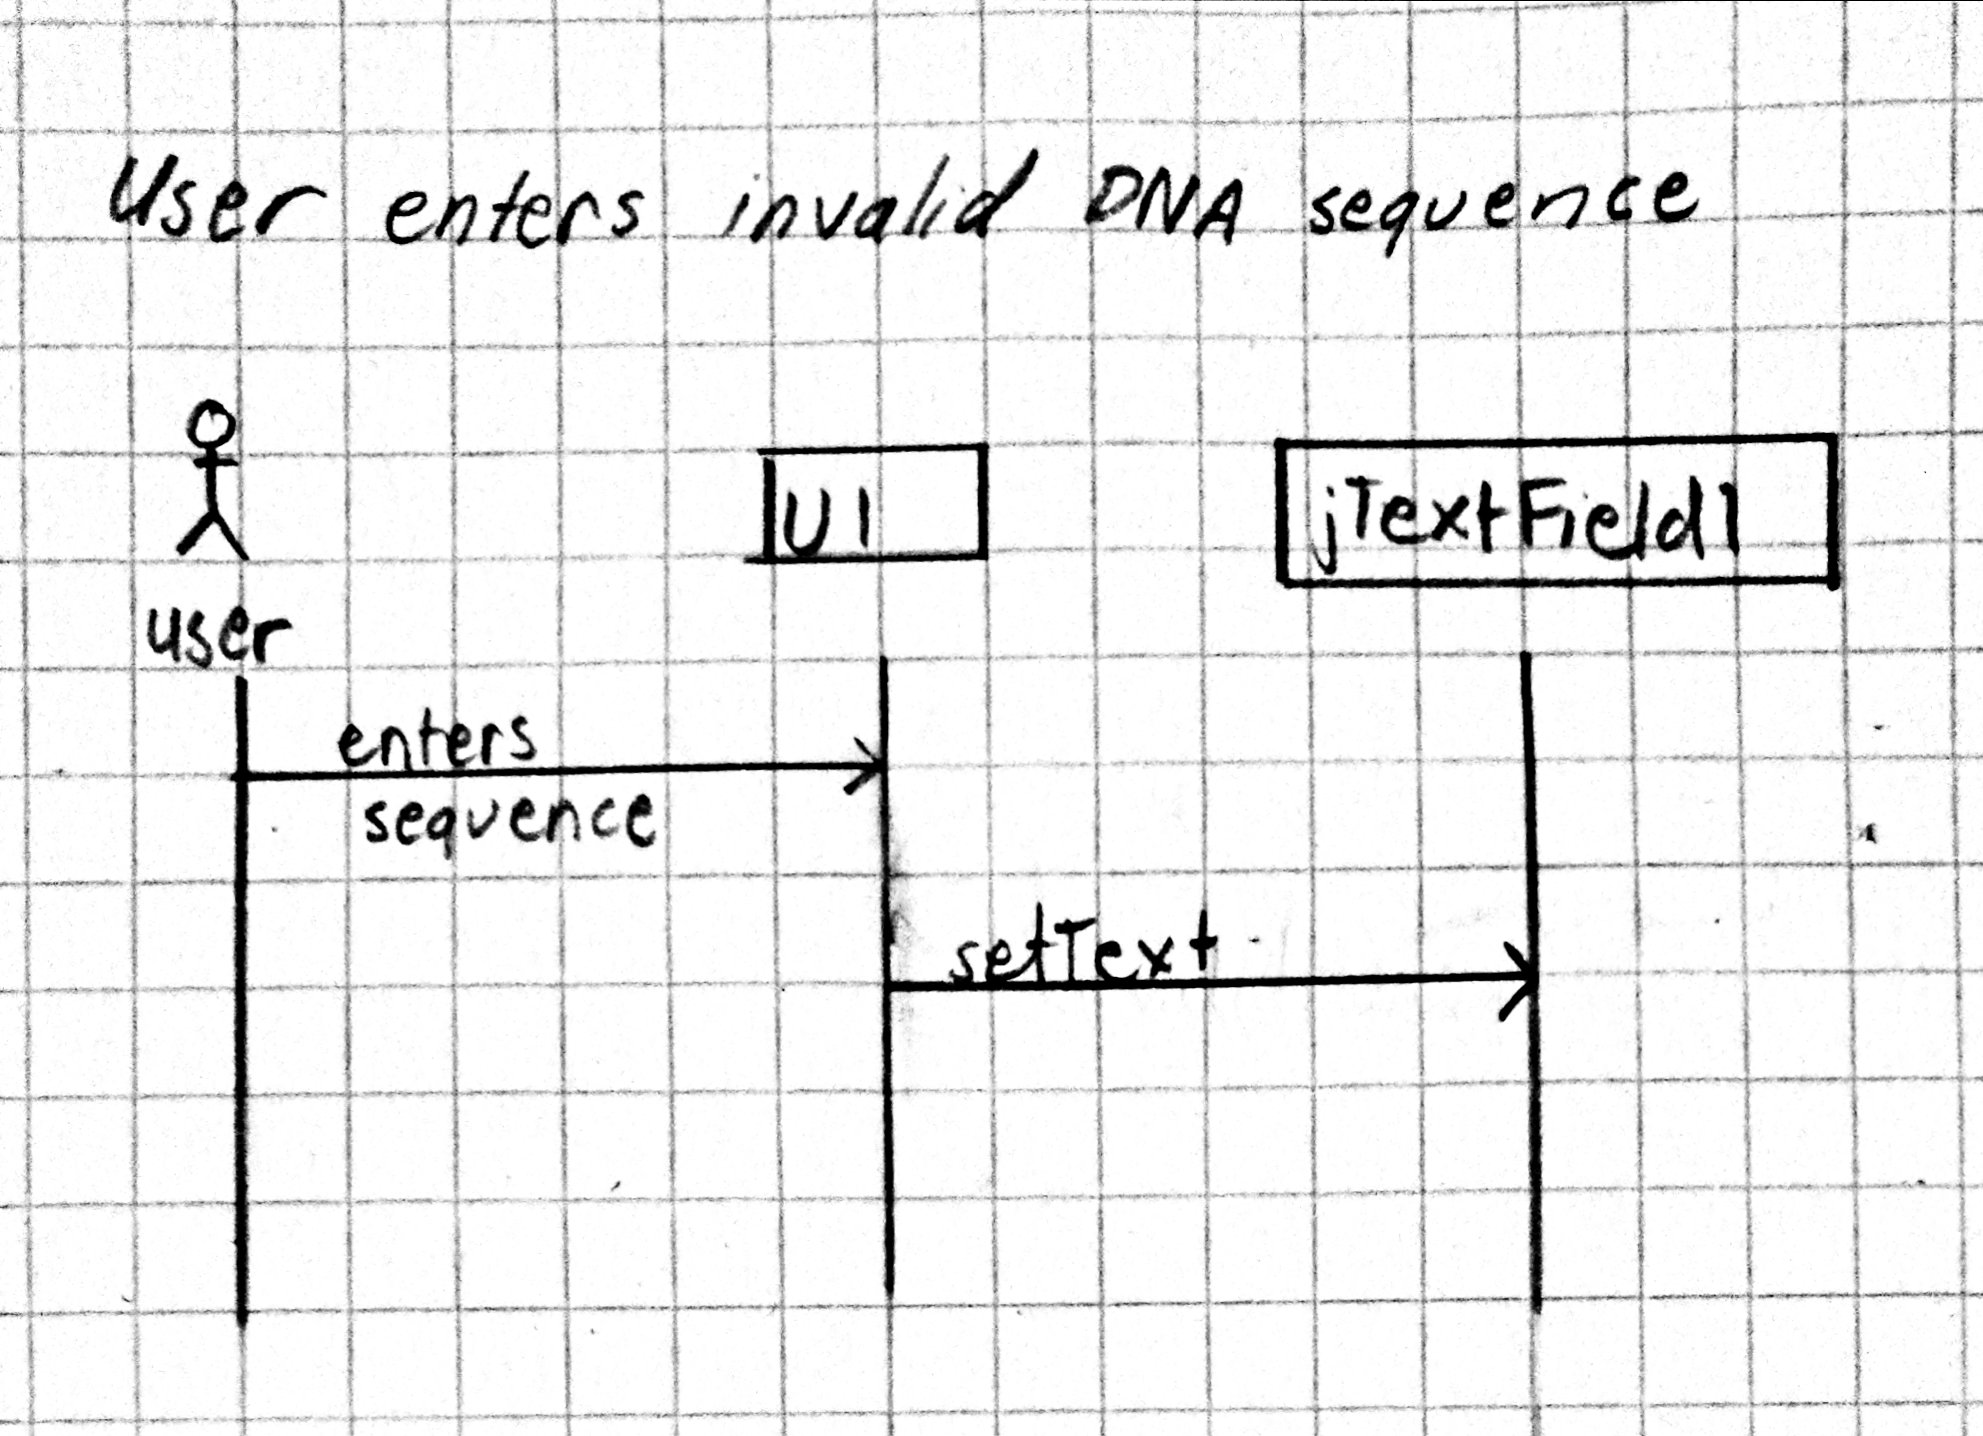 User enters invalid DNA sequence
UI
jTextField1
user
enters
sequence
setText